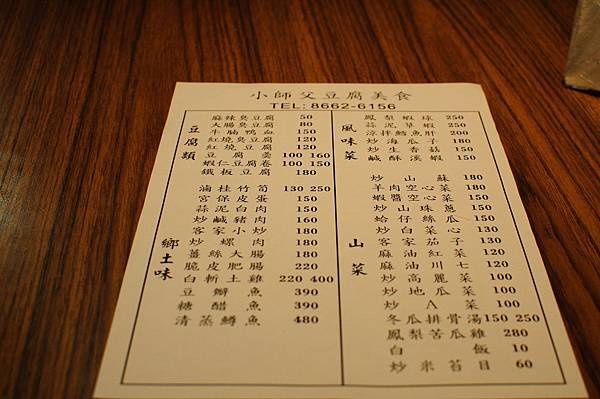 小師父豆腐美食
TEL: 8662-6156
豆腐類
麻辣臭豆腐 50
大腸臭豆腐 80
牛腩鴨血 150
紅燒臭豆腐 120
紅燒豆腐 120
豆腐羹 100 160
蝦仁豆腐卷 100 150
鐵板豆腐 180
鄉土味
滷桂竹筍 130 250
宮保皮蛋 150
蒜泥白肉 150
炒鹹豬肉 160
客家小炒 180
炒螺肉 180
薑絲大腸 180
脆皮肥腸 220
白斬土雞 220 400
豆瓣魚 390
糖醋魚 390
清蒸鱒魚 480
風味菜
鳳梨蝦球 250
蒜泥草蝦 250
涼拌鱈魚肝 200
炒海瓜子 180
炒生香菇 150
鹹酥溪蝦 150
山菜
炒山蘇 180
羊肉空心菜 180
蝦醬空心菜 150
炒山珠蔥 150
蛤仔絲瓜 150
炒白菜心 130
客家茄子 130
麻油紅菜 120
麻油川七 120
炒高麗菜 100
炒地瓜菜 100
炒A菜 100
冬瓜排骨湯 150 250
鳳梨苦瓜雞 280
白飯 10
炒米苔目 60